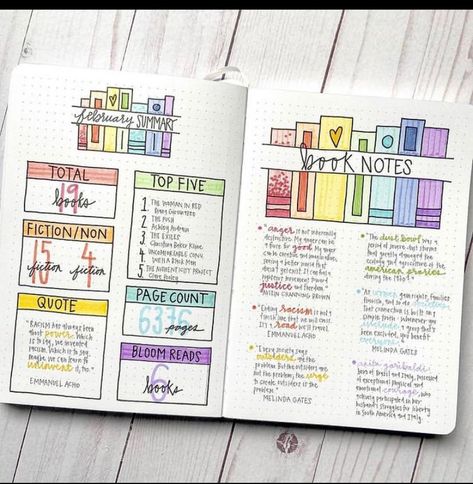 february SUMMARY
TOTAL
19
books
FICTION/NON
15 4
fiction fiction
QUOTE
"RACISM HAS ALWAYS BEEN
about power. WHICH
IS TO SAY, WE
INVENTED
RACISM. WHICH IS TO SAY,
MAYBE, WE CAN LEARN TO
uninvent it, too."
EMMANUEL ACHO
TOP FIVE
1. THE WOMAN IN RED
Diana Giovinazzo
2. THE PUSH
Ashley Audrain
3. THE EXILES
Christina Baker Kline
4. UNCOMFORTABLE CONV.
WITH A BLACK MAN
Emmanuel Acho
5. THE AUTHENTICITY PROJECT
PAGE COUNT
6376
pages
BLOOM READS
6
books
book NOTES
"anger IS NOT INHERENTLY
DESTRUCTIVE. MY ANGER CAN BE
A FORCE FOR good. MY ANGER
CAN BE CREATIVE AND IMAGINATIVE,
SEEING A BETTER WORLD THAT
DOESN'T YET EXIST. IT CAN FUEL A
RIGHTEOUS MOVEMENT TOWARD
justice AND FREEDOM."
AUSTIN CHANNING BROWN
"Ending racism IS NOT A
FINISH LINE THAT WE WILL CROSS.
IT'S A road WE'LL TRAVEL."
EMMANUEL ACHO
"Every society says
outsiders ARE THE
PROBLEM. BUT THE OUTSIDERS ARE
NOT THE PROBLEM; THE urge
TO CREATE OUTSIDERS IS THE
PROBLEM."
MELINDA GATES
THE dust bowl WAS A
PERIOD OF SEVERE DUST STORMS
THAT GREATLY DAMAGED THE
ECOLOGY AND AGRICULTURE OF THE
american prairies
DURING THE 1930s
"AS women GAIN RIGHTS, FAMILIES
FLOURISH, AND SO DO societies.
THAT CONNECTION IS BUILT ON A
SIMPLE TRUTH: WHENEVER YOU
include A GROUP THAT'S
BEEN EXCLUDED, YOU BENEFIT
everyone."
MELINDA GATES
anita garibaldi:
BORN IN BRAZIL AND ITALY, POSSESSED
OF EXCEPTIONAL PHYSICAL AND
EMOTIONAL courage, WHO
ACTIVELY PARTICIPATED IN HER
HUSBAND'S STRUGGLES FOR LIBERTY
IN SOUTH AMERICA AND ITALY.